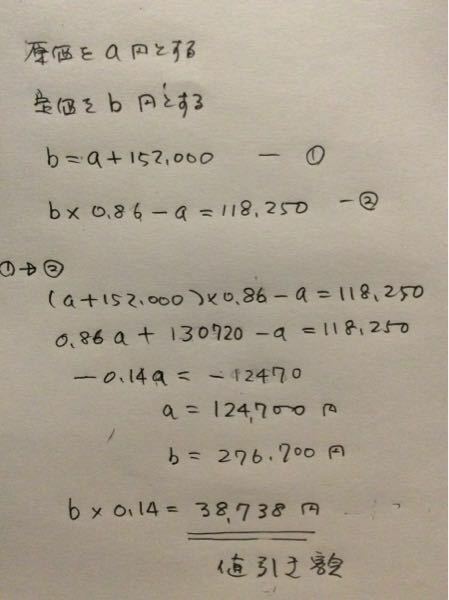 原価を a 円とする
定価を b 円とする
b = a + 152,000 — ①
b × 0.86 - a = 118,250 — ②
① → ②
(a + 152,000) × 0.86 - a = 118,250
0.86 a + 130720 - a = 118,250
- 0.14a = - 12470
a = 124,700 円
b = 276.700 円
b × 0.14 = 38,738 円
値引き額